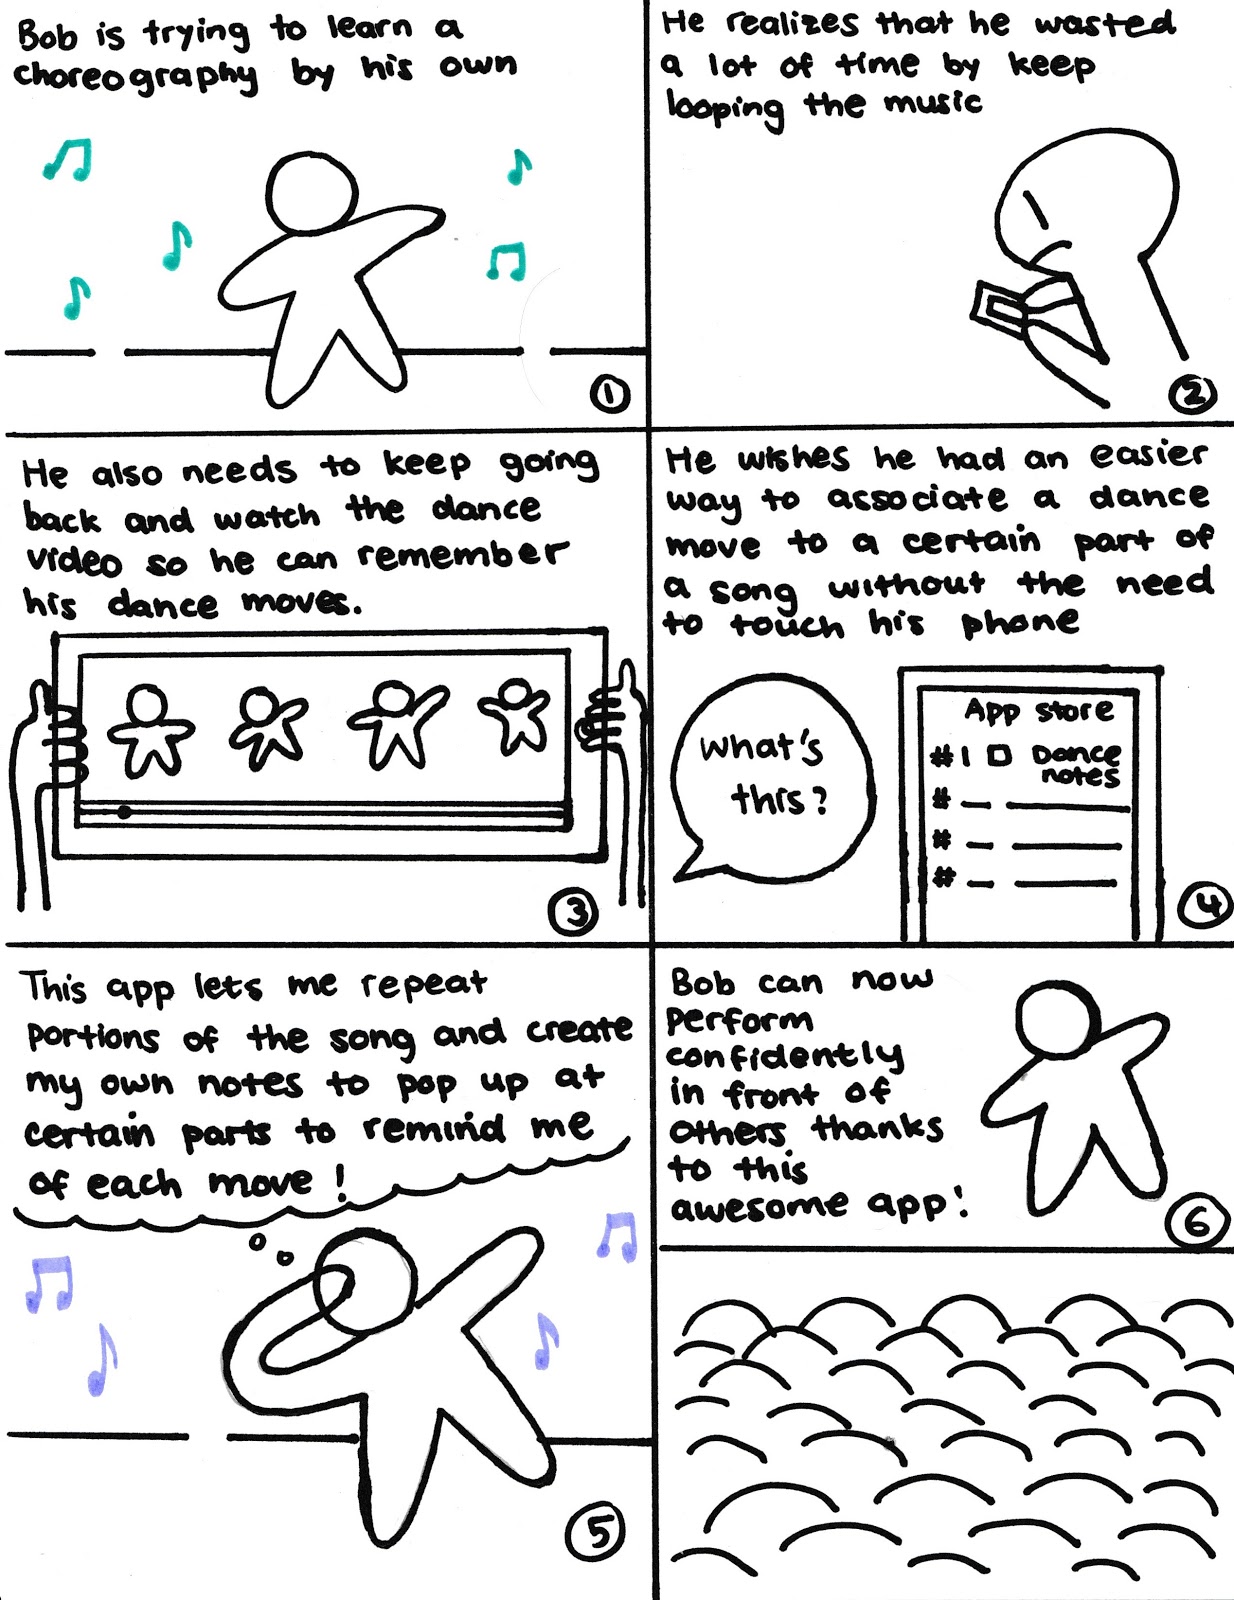 Bob is trying to learn a
choreography by his own
1
He realizes that he wasted
a lot of time by keep
looping the music
2
He also needs to keep going
back and watch the dance
video so he can remember
his dance moves.
3
He wishes he had an easier
way to associate a dance
move to a certain part of
a song without the need
to touch his phone
What's
this?
App store
#1 Dance
notes
#
#
#
4
This app lets me repeat
portions of the song and create
my own notes to pop up at
certain parts to remind me
of each move!
5
Bob can now
perform
confidently
in front of
others thanks
to this
awesome app!
6